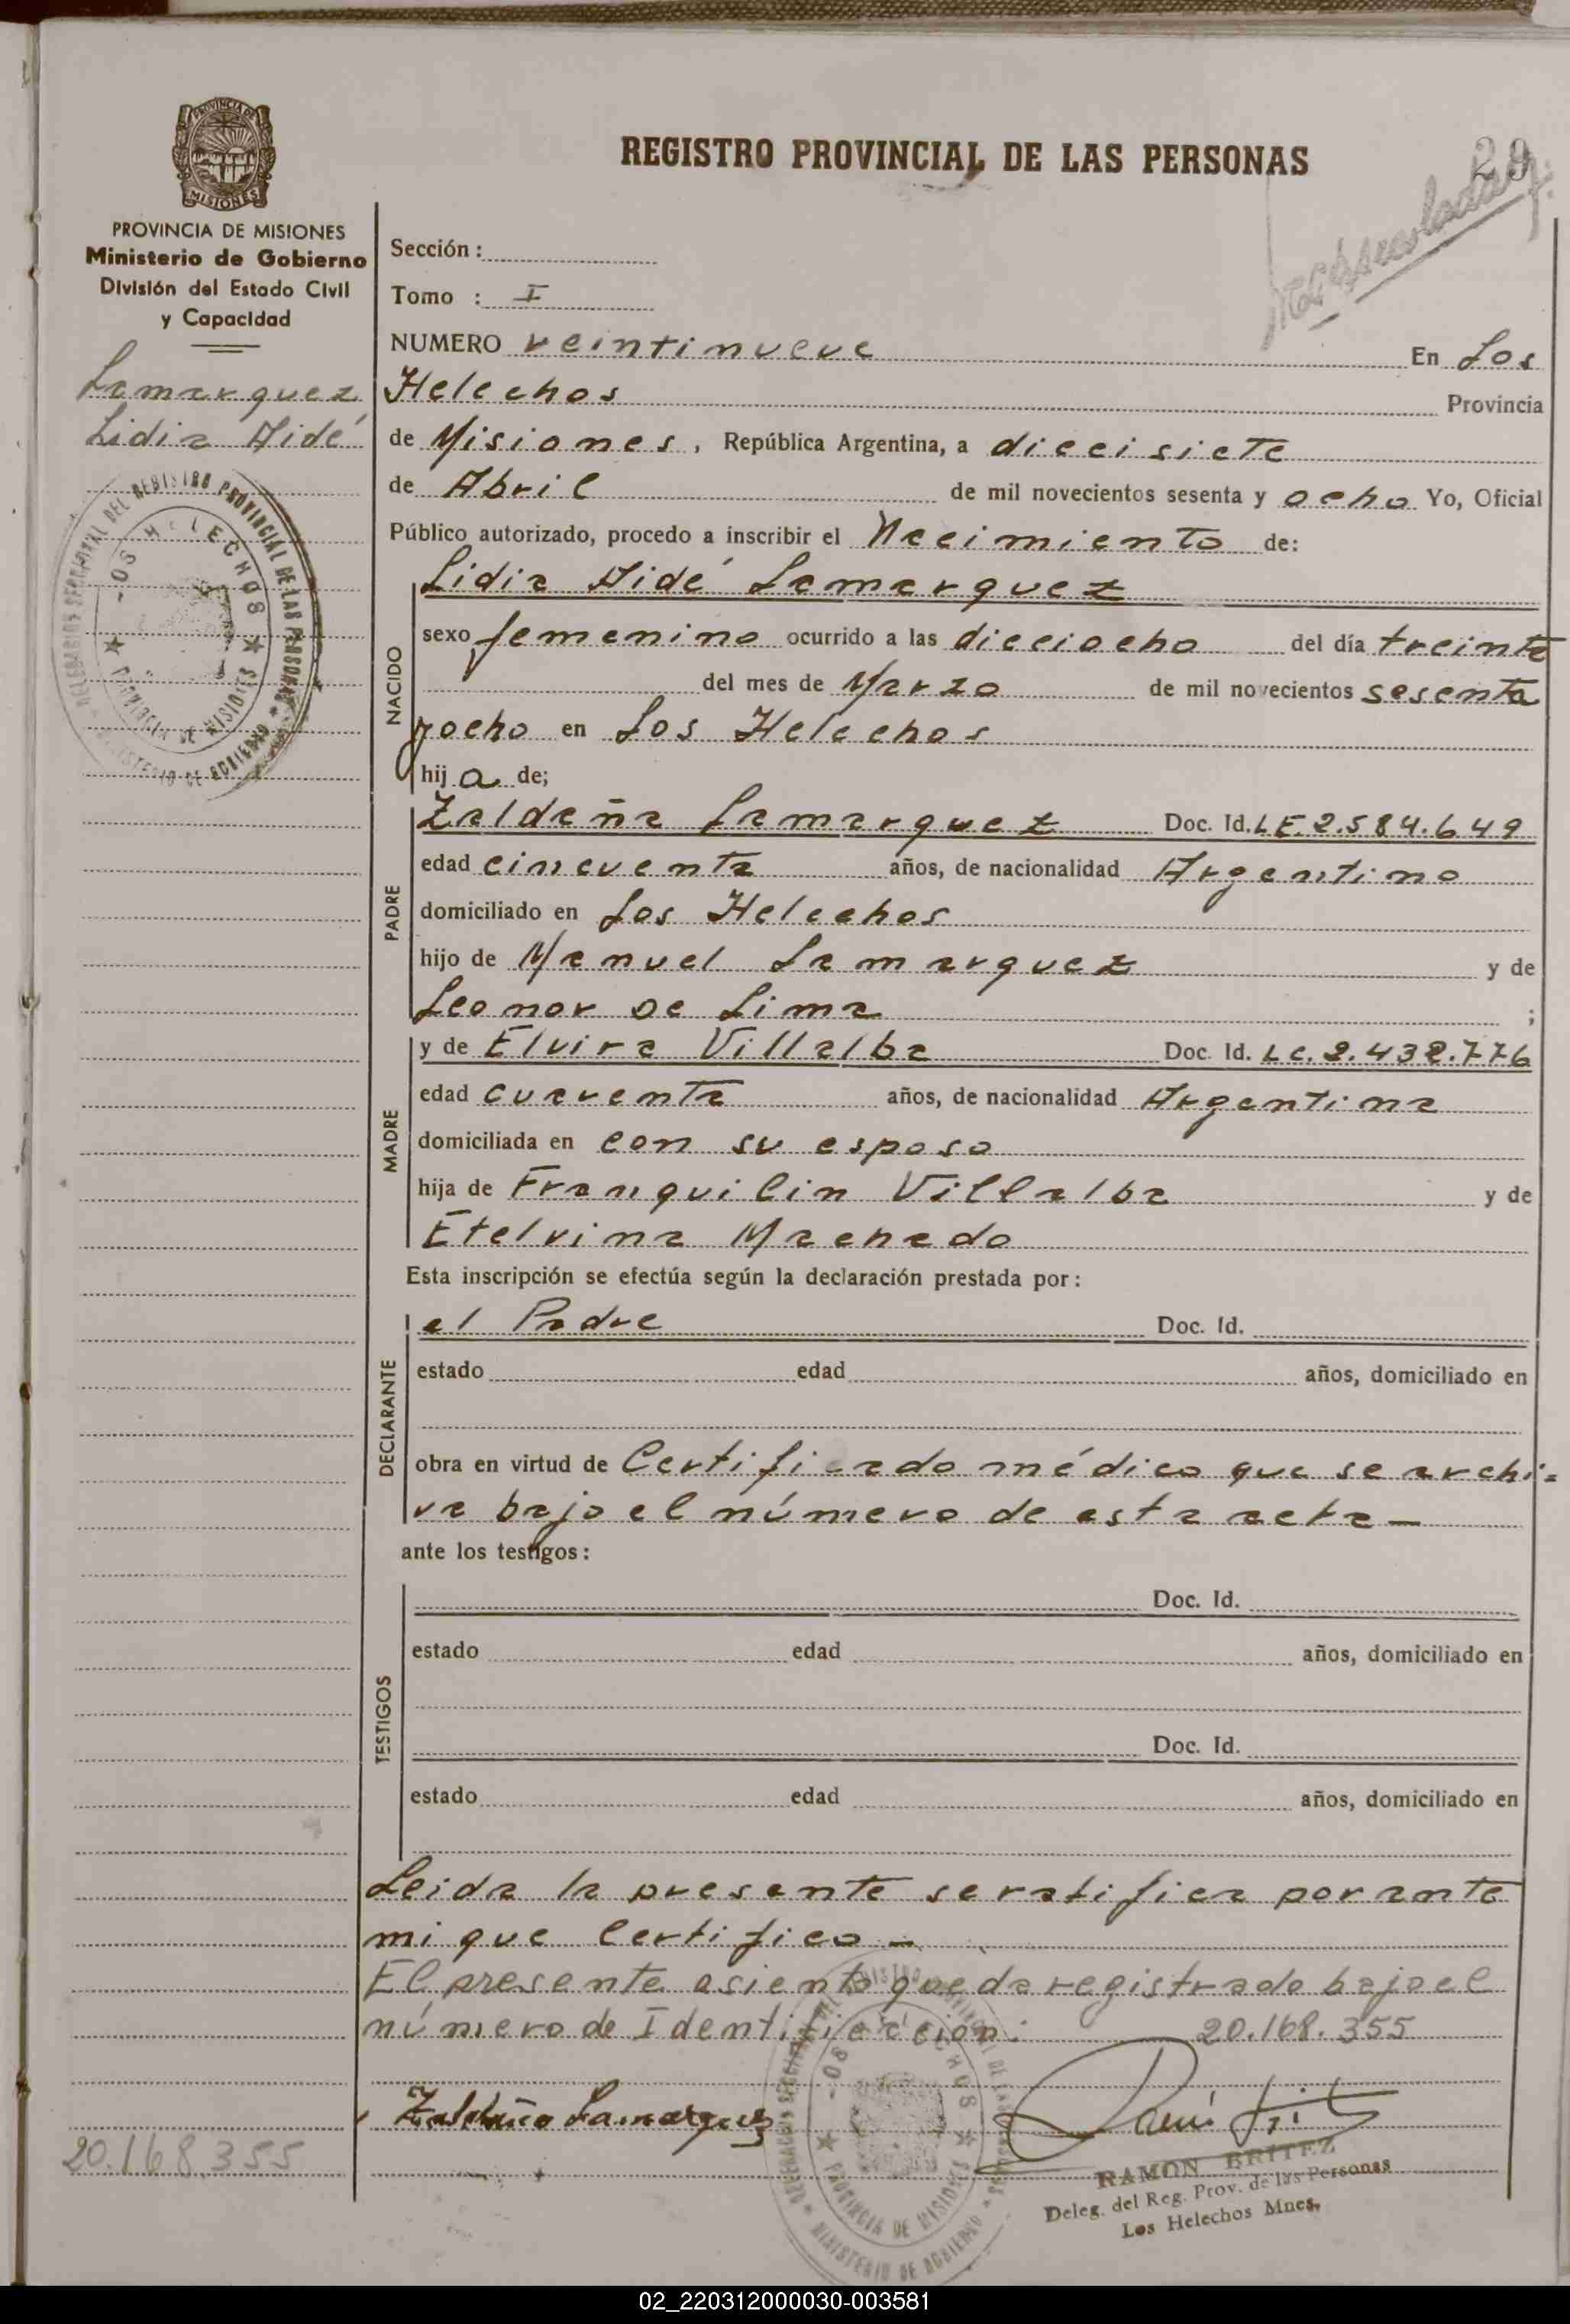 PROVINCIA DE
MISIONES
REGISTRO PROVINCIAL DE LAS PERSONAS
29
PROVINCIA DE MISIONES
Ministerio de Gobierno
División del Estado Civil
y Capacidad
Lamarquez
Lidia Aidé
Sección :
Tomo : I
NUMERO veintinueve En Los
Helechos Provincia
de Misiones, República Argentina, a diecisiete
de Abril de mil novecientos sesenta y ocho Yo, Oficial
Público autorizado, procedo a inscribir el Nacimiento de:
NACIDO
Lidia Aidé Lamarquez
sexo femenino ocurrido a las dieciocho del día treinta
del mes de Marzo de mil novecientos sesenta
y ocho en Los Helechos
hija de;
PADRE
Zaldaña Lamarquez Doc. Id. LE.2.584.649
edad cincuenta años, de nacionalidad Argentino
domiciliado en Los Helechos
hijo de Manuel Lamarquez y de
Leonor De Lima ;
MADRE
y de Elvira Villalba Doc. Id. Lc.2.432.776
edad cuarenta años, de nacionalidad Argentina
domiciliada en con su esposo
hija de Franquilin Villalba y de
Etelvina Machado
Esta inscripción se efectúa según la declaración prestada por :
DECLARANTE
el Padre Doc. Id.
estado edad años, domiciliado en
obra en virtud de Certificado médico que se archi=
va bajo el número de esta acta —
ante los testigos :
TESTIGOS
Doc. Id.
estado edad años, domiciliado en
Doc. Id.
estado edad años, domiciliado en
Leida la presente se ratifica por ante
mi que Certifico —
El presente asiento queda registrado bajo el
número de Identificación: 20.168.355
Zaldaña Lamarquez
20.168.355
RAMON BRITEZ
Deleg. del Reg. Prov. de las Personas
Los Helechos Mnes.
DELEGACION SECCIONAL DEL REGISTRO PROVINCIAL DE LAS PERSONAS
LOS HELECHOS
PROVINCIA DE MISIONES
MINISTERIO DE GOBIERNO
02_220312000030-003581